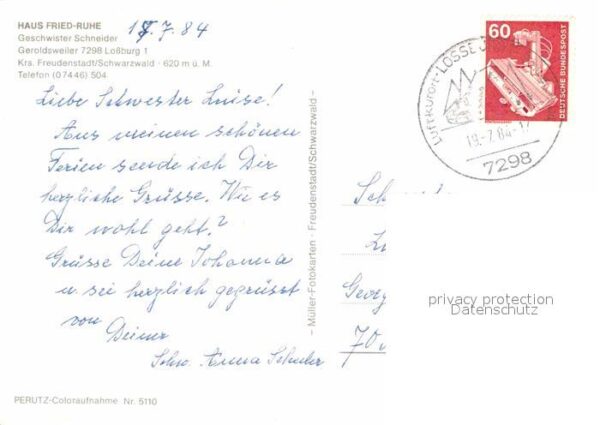 HAUS FRIED-RUHE
Geschwister Schneider
Geroldsweiler 7298 Loßburg 1
Krs. Freudenstadt/Schwarzwald · 620 m ü. M.
Telefon (07446) 504
17.7.84
Liebe Schwester Luise!
Aus meinen schönen
Ferien sende ich Dir
herzliche Grüsse. Wie es
Dir wohl geht?
Grüsse Deine Johanna
u sei herzlich gegrüsst
von Deiner
Schw. Anna Schuler
PERUTZ-Coloraufnahme Nr. 5110
– Müller-Fotokarten · Freudenstadt/Schwarzwald –
60
DEUTSCHE BUNDESPOST
Luftkurort
7298
Georg
privacy protection
Datenschutz